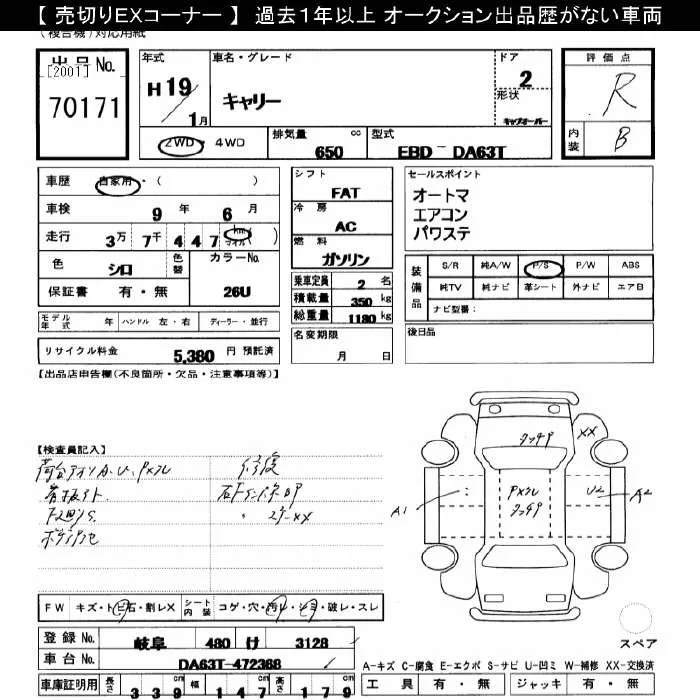 【 売切りEXコーナー 】 過去１年以上 オークション出品歴がない車両
(複合機)対応用紙
出品 No.
[2001]
70171
年式
H 19
1月
車名・グレード
キャリー
ドア
2
形状
キャブオーバー
評価点
R
内装
B
2WD・4WD
排気量
cc
650
型式
EBD－DA63T
車歴
自家用・( )
車検
9 年 6 月
走行
3万 7千 4 4 7 km マイル
色
シロ
色替
カラーNo.
26U
保証書
有・無
シフト
FAT
冷房
AC
燃料
ガソリン
乗車定員 2 名
積載量 350 kg
総重量 1180 kg
セールスポイント
オートマ
エアコン
パワステ
装備品
S/R 純A/W P/S P/W ABS
純TV 純ナビ 革シート 外ナビ エアB
ナビ型番：
モデル年式 年 ハンドル 左・右 ディーラー・並行
リサイクル料金 5,380 円 預託済
名変期限
月 日
後日品
【出品店申告欄(不良箇所・欠品・注意事項等)】
【検査員記入】
XX
A1
U2
A2
FW キズ・トビ石・割レX シート内装 コゲ・穴・汚レ・シミ・破レ・スレ
登録 No. 岐阜 480 け 3128
車台 No. DA63T-472368
車庫証明用 長さ 339 cm 幅 147 cm 高さ 179 cm
スペア
A-キズ C-腐食 E-エクボ S-サビ U-凹ミ W-補修 XX-交換済
工具 有・無 ジャッキ 有・無